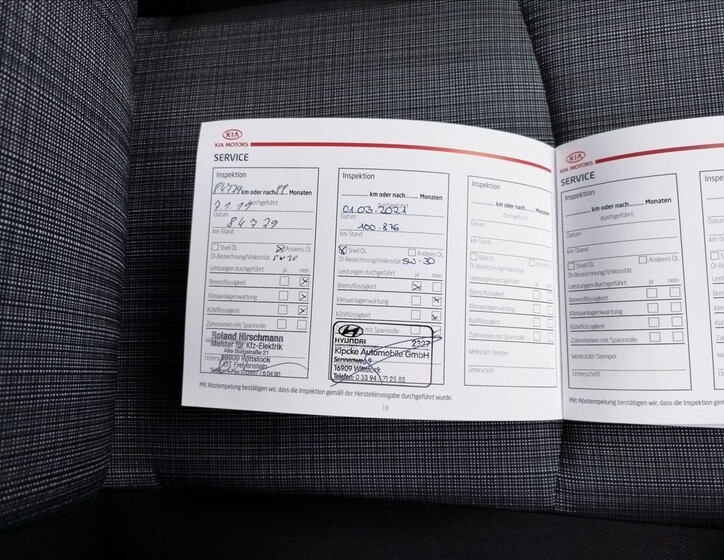 KIA
KIA MOTORS
SERVICE
Inspektion
84729 km oder nach 88 Monaten
durchgeführt:
7.1.19
Datum
84729
km-Stand
Shell Öl Anderes Öl
Öl-Bezeichnung/Viskosität 5W30
Leistungen durchgeführt: ja nein
Bremsflüssigkeit
Klimaanlagenwartung
Kühlflüssigkeit
Zahnriemen mit Spannrolle
Roland Hirschmann
Meister für Kfz-Elektrik
Alte Burgstraße 21
16909 Wittstock
OT Freyenstein
Inspektion
km oder nach Monaten
durchgeführt:
01.03.2021
Datum
100.876
km-Stand
Shell Öl Anderes Öl
Öl-Bezeichnung/Viskosität 5W-30
Leistungen durchgeführt: ja nein
Bremsflüssigkeit
Klimaanlagenwartung
Kühlflüssigkeit
mit Spannrolle
HYUNDAI 2327
Klpcke Automobile GmbH
16909 Wittstock
Telefon: 0 33 94 / 71 25 55
Inspektion
km oder nach Monaten
durchgeführt:
Datum
km-Stand
Shell Öl Anderes
Öl-Bezeichnung/Viskosität
Leistungen durchgeführt: ja nein
Bremsflüssigkeit
Klimaanlagenwartung
Kühlflüssigkeit
Zahnriemen mit Spannrolle
Werkstatt-Stempel
Unterschrift
Mit Abstempelung bestätigen wir, dass die Inspektion gemäß der Herstellervorgabe durchgeführt wurde.
18
KIA
KIA MOTORS
SERVICE
Inspektion
km oder nach Monaten
durchgeführt:
Datum
km-Stand
Shell Öl Anderes Öl
Öl-Bezeichnung/Viskosität
Leistungen durchgeführt: ja nein
Bremsflüssigkeit
Klimaanlagenwartung
Kühlflüssigkeit
Zahnriemen mit Spannrolle
Werkstatt-Stempel
Unterschrift
Mit Abstempelung bestätigen wir, dass die Inspektion gemäß